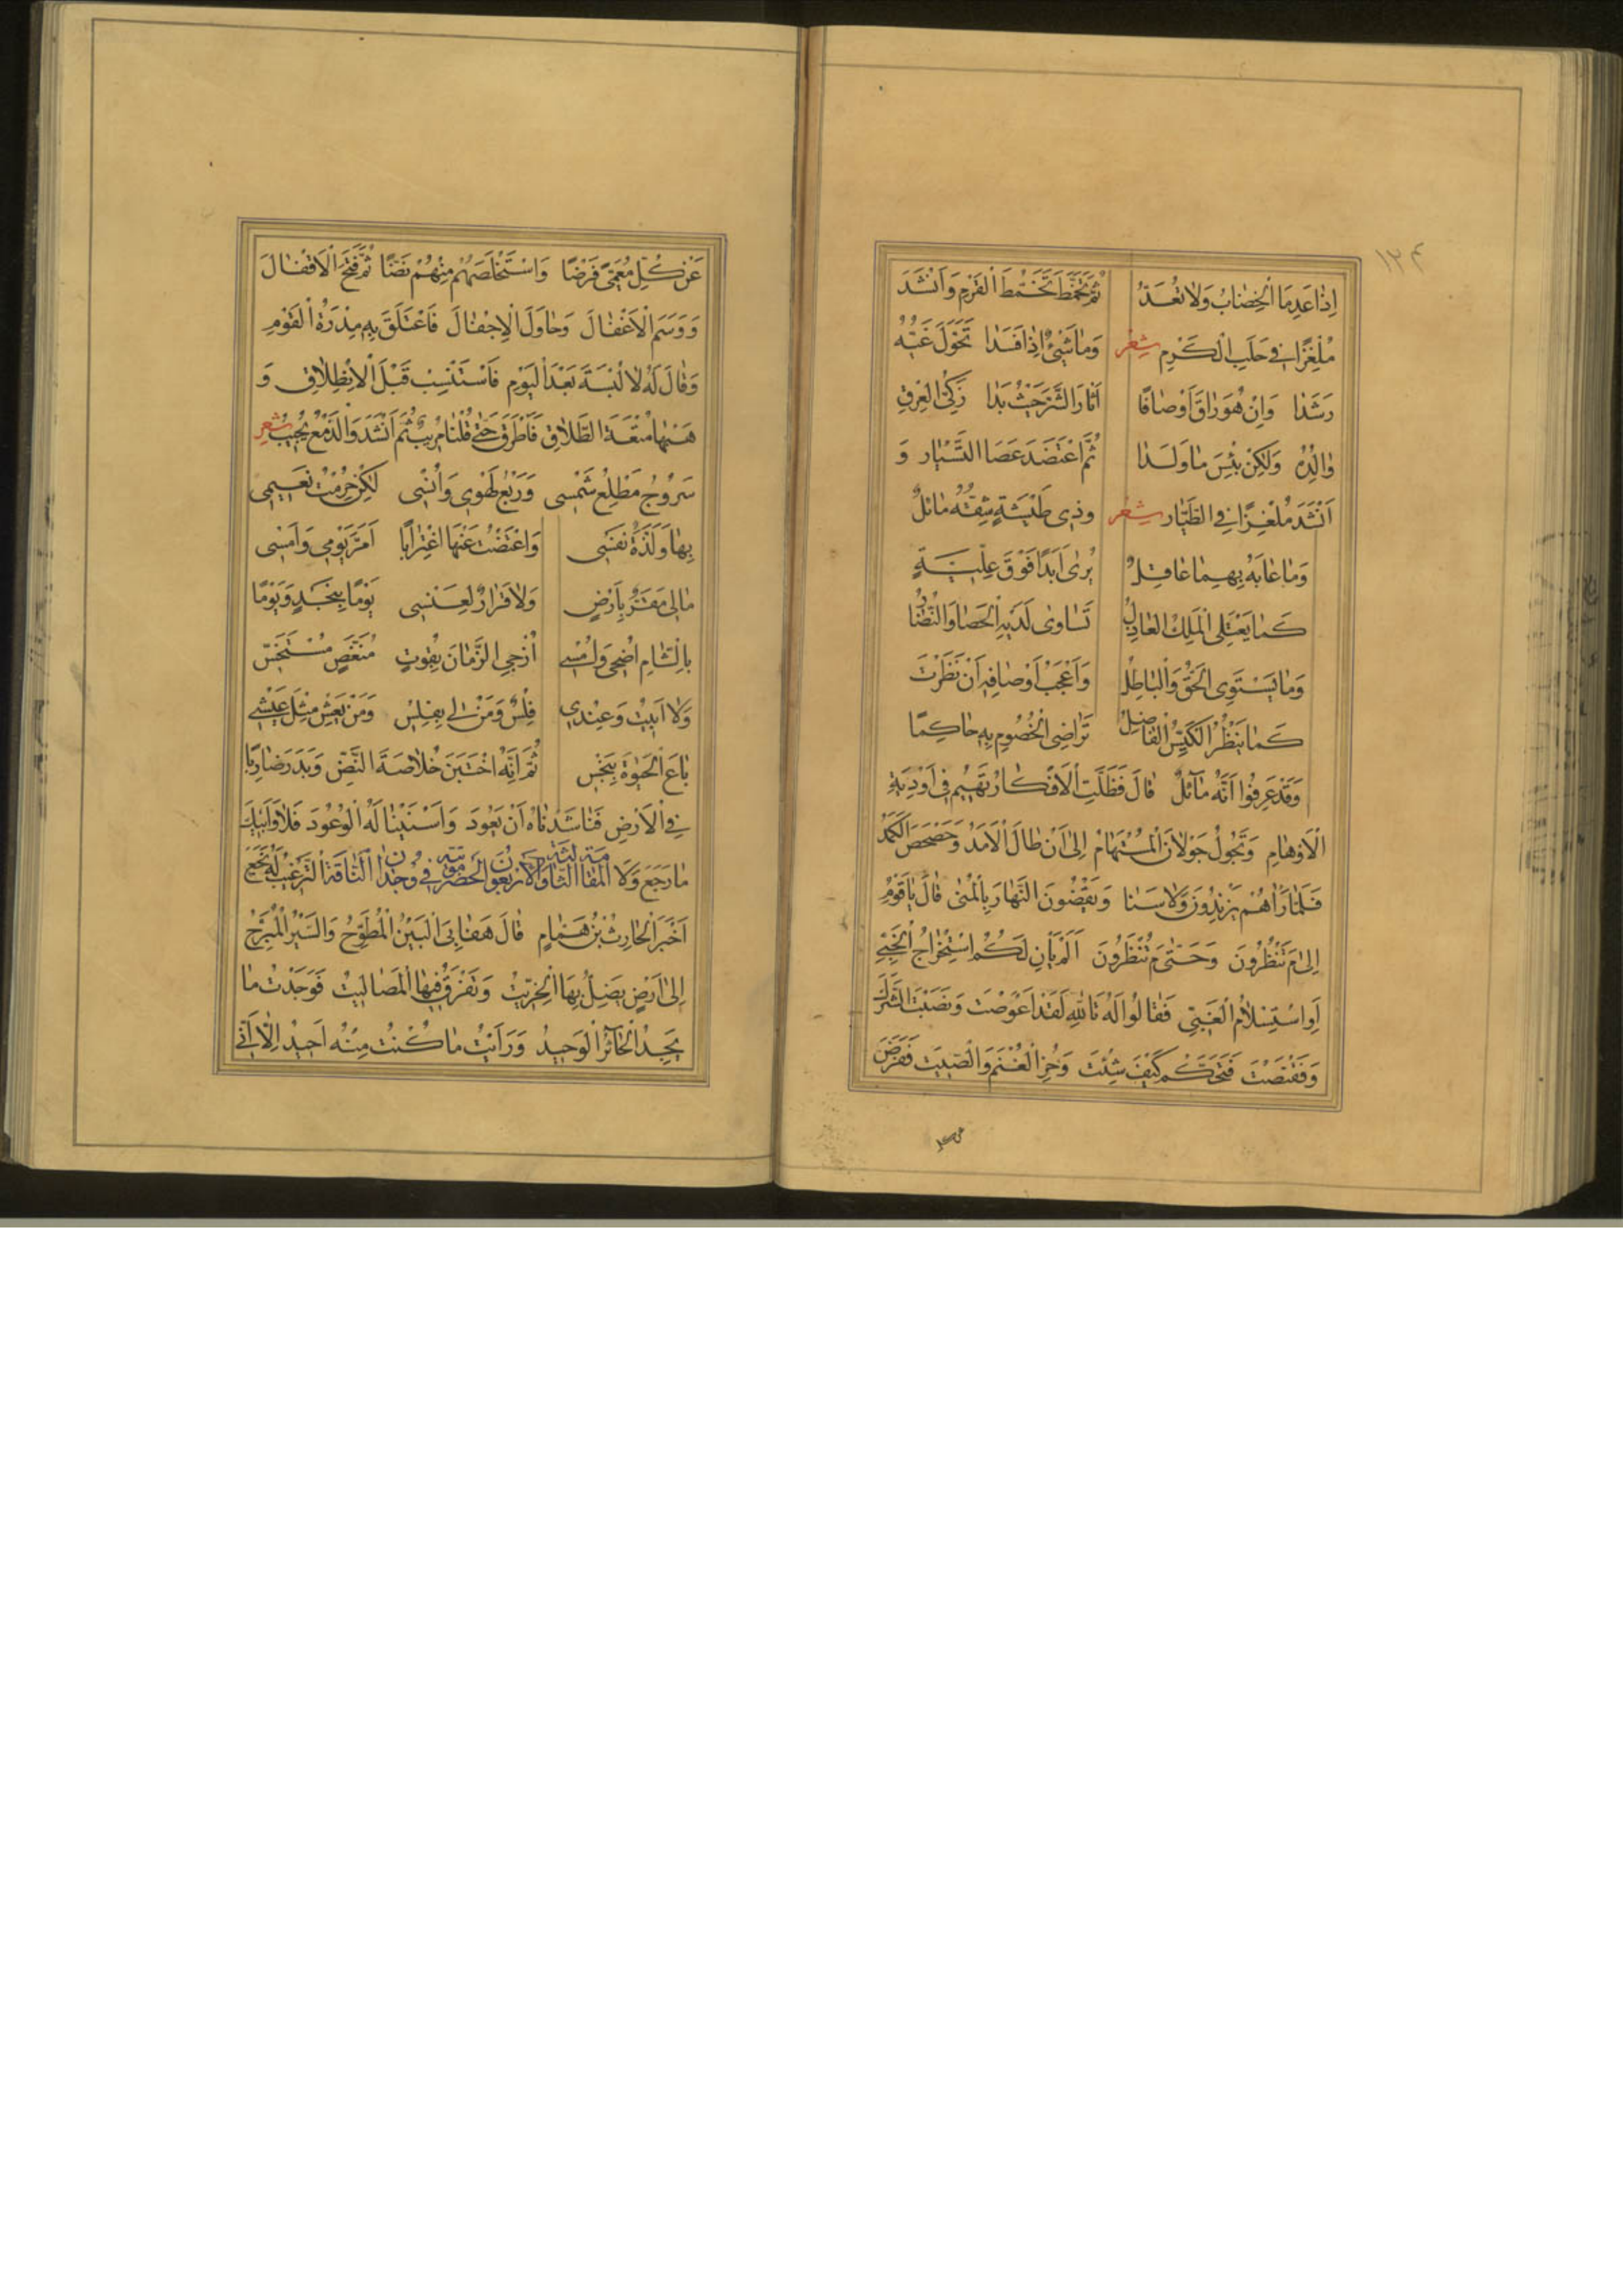 ١٢٤
اِذَا عَدِمَا الْخِضَابُ وَلَا تُعَدُّ ثُمَّ تَخَمَّطَ تَخَمُّطَ الْقَرْمِ وَاَنْشَدَ
مُلْغِزًا فِي حَلَبِ الْكَرْمِ شِعْر وَمَا شَيْءٌ اِذَا فَسَدَا تَحَوَّلَ غَيُّهُ
رَشَدَا وَاِنْ هُوَ رَاقَ اَوْصَافًا اَثَارَ الشَّرَّ حَيْثُ بَدَا زَكِيُّ الْعِرْقِ
وَالِدُهُ وَلٰكِنْ بِئْسَ مَا وَلَدَا ثُمَّ اعْتَضَدَ عَصَا التَّسْيَارِ وَ
اَنْشَدَ مُلْغِزًا فِي الطَّيَّارِ شِعْر وَذِي طَيْشَةٍ شِقُّهُ مَائِلٌ
وَمَا عَابَهُ بِهِمَا عَاقِلٌ يُرٰى اَبَدًا فَوْقَ عِلِّيَّةٍ
كَمَا يَعْتَلِي الْمَلِكُ الْعَادِلُ تَسَاوٰى لَدَيْهِ الْحَصَا وَالنُّضَارُ
وَمَا يَسْتَوِي الْحَقُّ وَالْبَاطِلُ وَاَعْجَبُ اَوْصَافِهِ اَنْ نَظَرْتَ
كَمَا يَنْظُرُ الْكَيِّسُ الْفَاضِلُ تَرَاضِي الْخُصُومِ بِهِ حَاكِمًا
وَقَدْ عَرَفُوا اَنَّهُ مَائِلٌ قَالَ فَظَلَّتِ الْاَفْكَارُ تَهِيمُ فِي اَوْدِيَةِ
الْاَوْهَامِ وَتَجُولُ جَوَلَانَ الْمُسْتَهَامِ اِلٰى اَنْ طَالَ الْاَمَدُ وَحَصْحَصَ الْكَمَدُ
فَلَمَّا رَاٰهُمْ يَزْنِدُونَ وَلَا سَنَا وَيَقْضُونَ النَّهَارَ بِالْمُنٰى قَالَ يَا قَوْمُ
اِلٰى مَ تَنْظُرُونَ وَحَتّٰى مَ تُنْظَرُونَ اَلَمْ يَأْنِ لَكُمُ اسْتِخْرَاجُ الْخَبِيِّ
اَوِ اسْتِسْلَامُ الْغَبِيِّ فَقَالُوا لَهُ تَاللّٰهِ لَقَدْ اَعْوَصْتَ وَنَصَبْتَ الشَّرَكَ
وَقَنَصْتَ فَتَحَكَّمْ كَيْفَ شِئْتَ وَحُزِ الْغُنْمَ وَالصِّيتَ فَفَرَضَ
عَنْ كُلِّ مُعَمًّى فَرْضًا وَاسْتَخْلَصَهُمْ مِنْهُمْ نَضًّا ثُمَّ فَتَحَ الْاَقْفَالَ
وَوَسَمَ الْاَغْفَالَ وَحَاوَلَ الْاِجْفَالَ فَاعْتَلَقَ بِهِ مِدْرَهُ الْقَوْمِ
وَقَالَ لَهُ لَا لُبْسَةَ بَعْدَ الْيَوْمِ فَاسْتَنْسِبْ قَبْلَ الْاِنْطِلَاقِ وَ
هَبْهَا مُتْعَةَ الطَّلَاقِ فَاَطْرَقَ حَتّٰى قُلْنَا مُرِيبٌ ثُمَّ اَنْشَدَ وَالدَّمْعُ يُجِيبُ شِعْر
سَرُوجُ مَطْلِعُ شَمْسِي وَرَبْعُ لَهْوِي وَاُنْسِي لٰكِنْ حُرِمْتُ نَعِيمِي
بِهَا وَلَذَّةَ نَفْسِي وَاعْتَضْتُ عَنْهَا اغْتِرَابًا اَمَرَّ يَوْمِي وَاَمْسِي
مَا لِي مَقَرٌّ بِاَرْضٍ وَلَا قَرَارٌ لِعَنْسِي يَوْمًا بِنَجْدٍ وَيَوْمًا
بِالشَّامِ اُضْحِي وَاُمْسِي اُزْجِي الزَّمَانَ بِقُوتٍ مُنَغَّصٍ مُسْتَخَسِّ
وَلَا اَبِيتُ وَعِنْدِي فِلْسٌ وَمَنْ لِي بِفِلْسٍ وَمَنْ يَعِشْ مِثْلَ عَيْشِي
بَاعَ الْحَيٰوةَ بِبَخْسٍ ثُمَّ اِنَّهُ اخْتَبَنَ خُلَاصَةَ النَّضِّ وَبَدَرَ ضَارِبًا
فِي الْاَرْضِ فَنَاشَدْنَاهُ اَنْ يَعُودَ وَاَسْنَيْنَا لَهُ الْوُعُودَ فَلَا وَاَبِيكَ
مَا رَجَعَ وَلَا الْمَقَامَةُ الثَّالِثَةُ وَالْاَرْبَعُونَ الْحَضْرَمِيَّةُ فِي وُجْدَانِ النَّاقَةِ التَّرْغِيبُ لَهُ نَجَعَ
اَخْبَرَ الْحَارِثُ بْنُ هَمَّامٍ قَالَ هَفَا بِيَ الْبَيْنُ الْمُطَوِّحُ وَالسَّيْرُ الْمُبَرِّحُ
اِلٰى اَرْضٍ يَضِلُّ بِهَا الْخِرِّيتُ وَتَفْرَقُ فِيهَا الْمَصَالِيتُ فَوَجَدْتُ مَا
يَجِدُ الْحَائِرُ الْوَحِيدُ وَرَاَيْتُ مَا كُنْتُ مِنْهُ اَحِيدُ اِلَّا اَنِّي